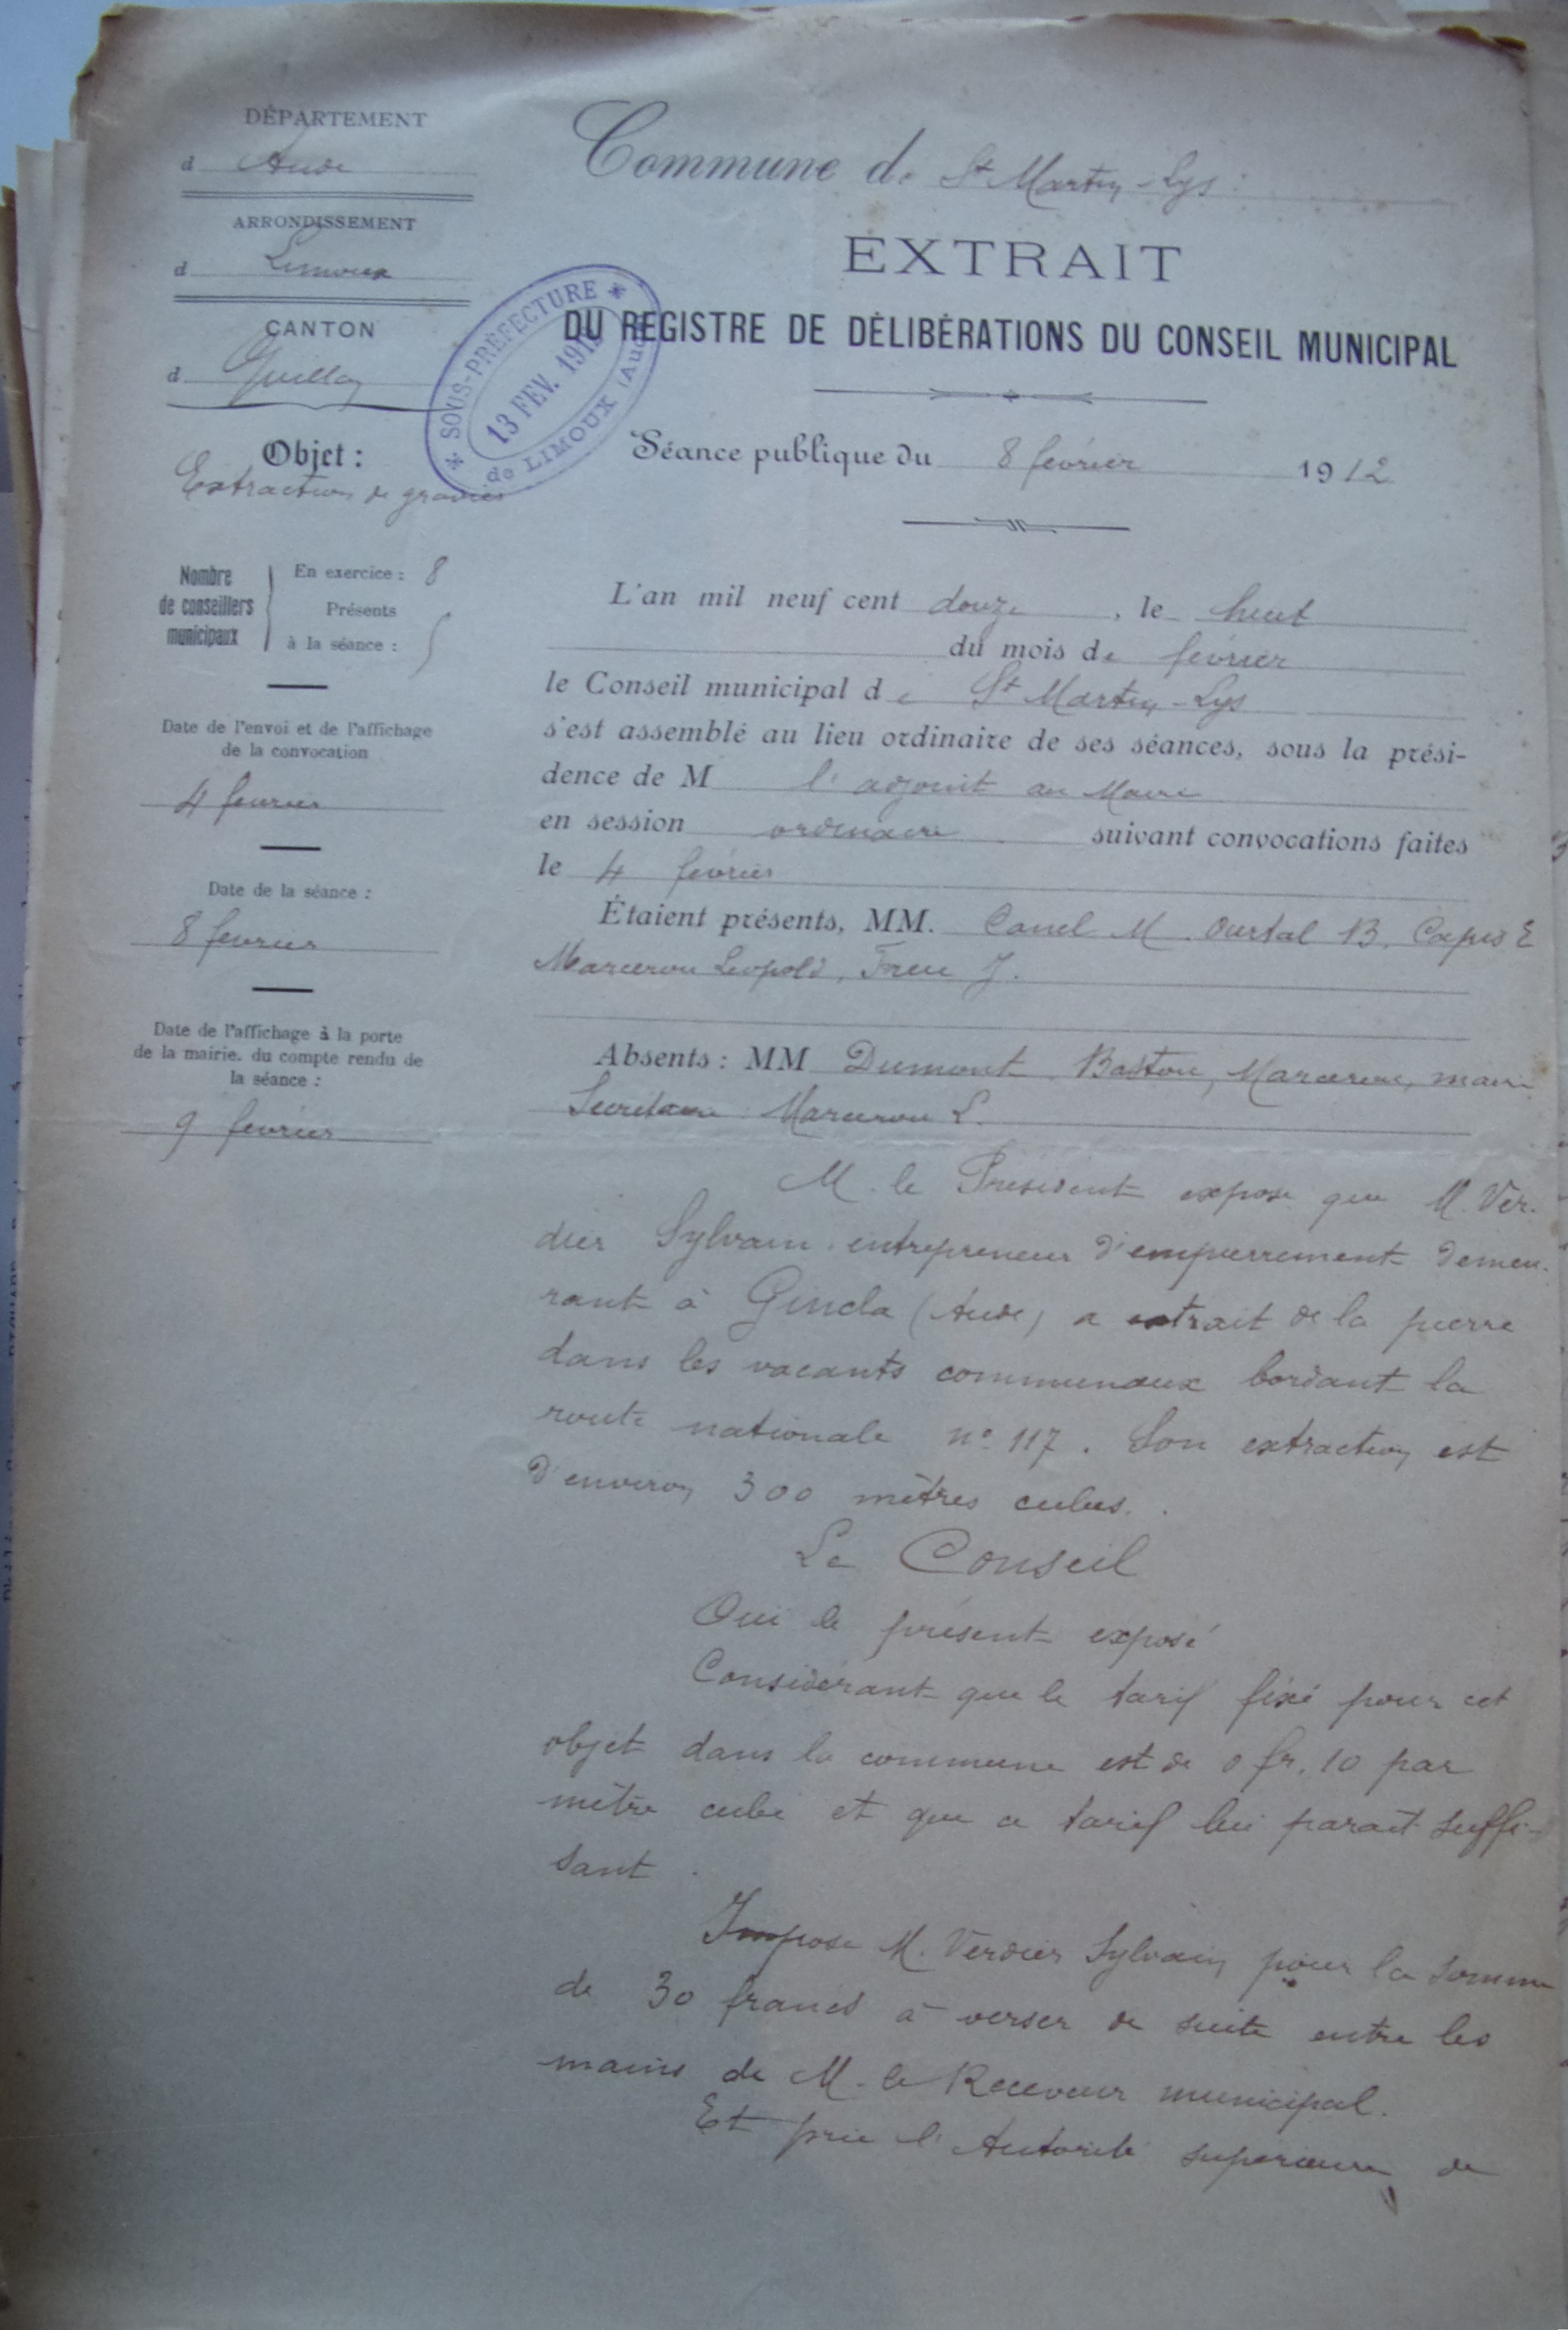 DÉPARTEMENT
d Aude
ARRONDISSEMENT
d Limoux
CANTON
d Quillan
Objet :
Extraction de gravier
Nombre
de conseillers
municipaux
En exercice : 8
Présents
à la séance : 5
Date de l'envoi et de l'affichage
de la convocation
4 fevrier
Date de la séance :
8 fevrier
Date de l'affichage à la porte
de la mairie. du compte rendu de
la séance :
9 fevrier
SOUS-PRÉFECTURE
13 FEV. 1912
de LIMOUX (Aude)
Commune de St Martin-Lys
EXTRAIT
DU REGISTRE DE DÉLIBÉRATIONS DU CONSEIL MUNICIPAL
Séance publique du 8 février 1912
L'an mil neuf cent douze, le huit
du mois de février
le Conseil municipal de St Martin-Lys
s'est assemblé au lieu ordinaire de ses séances, sous la prési-
dence de M l'adjoint au Maire
en session ordinaire suivant convocations faites
le 4 fevrier
Étaient présents, MM. Canel M. Ourtal B. Capis E
Marcerou Leopold, J.
Absents : MM Dumont, Baston, Marcerou, maire
Secretaire : Marcerou L.
M. le Président expose que M. Ver-
dier Sylvain entrepreneur d'empierrement demeu-
rant à Gincla (Aude) a extrait de la pierre
dans les vacants communaux bordant la
route nationale n° 117. Son extraction est
d'environ 300 mètres cubes.
Le Conseil
Oui le présent exposé
Considérant que le tarif fixé pour cet
objet dans la commune est de 0 fr. 10 par
mètre cube et que ce tarif lui parait suffi-
sant.
Impose M. Verdier Sylvain pour la somme
de 30 francs à verser de suite entre les
mains de M. le Receveur municipal.
Et prie l'Autorité superieure de